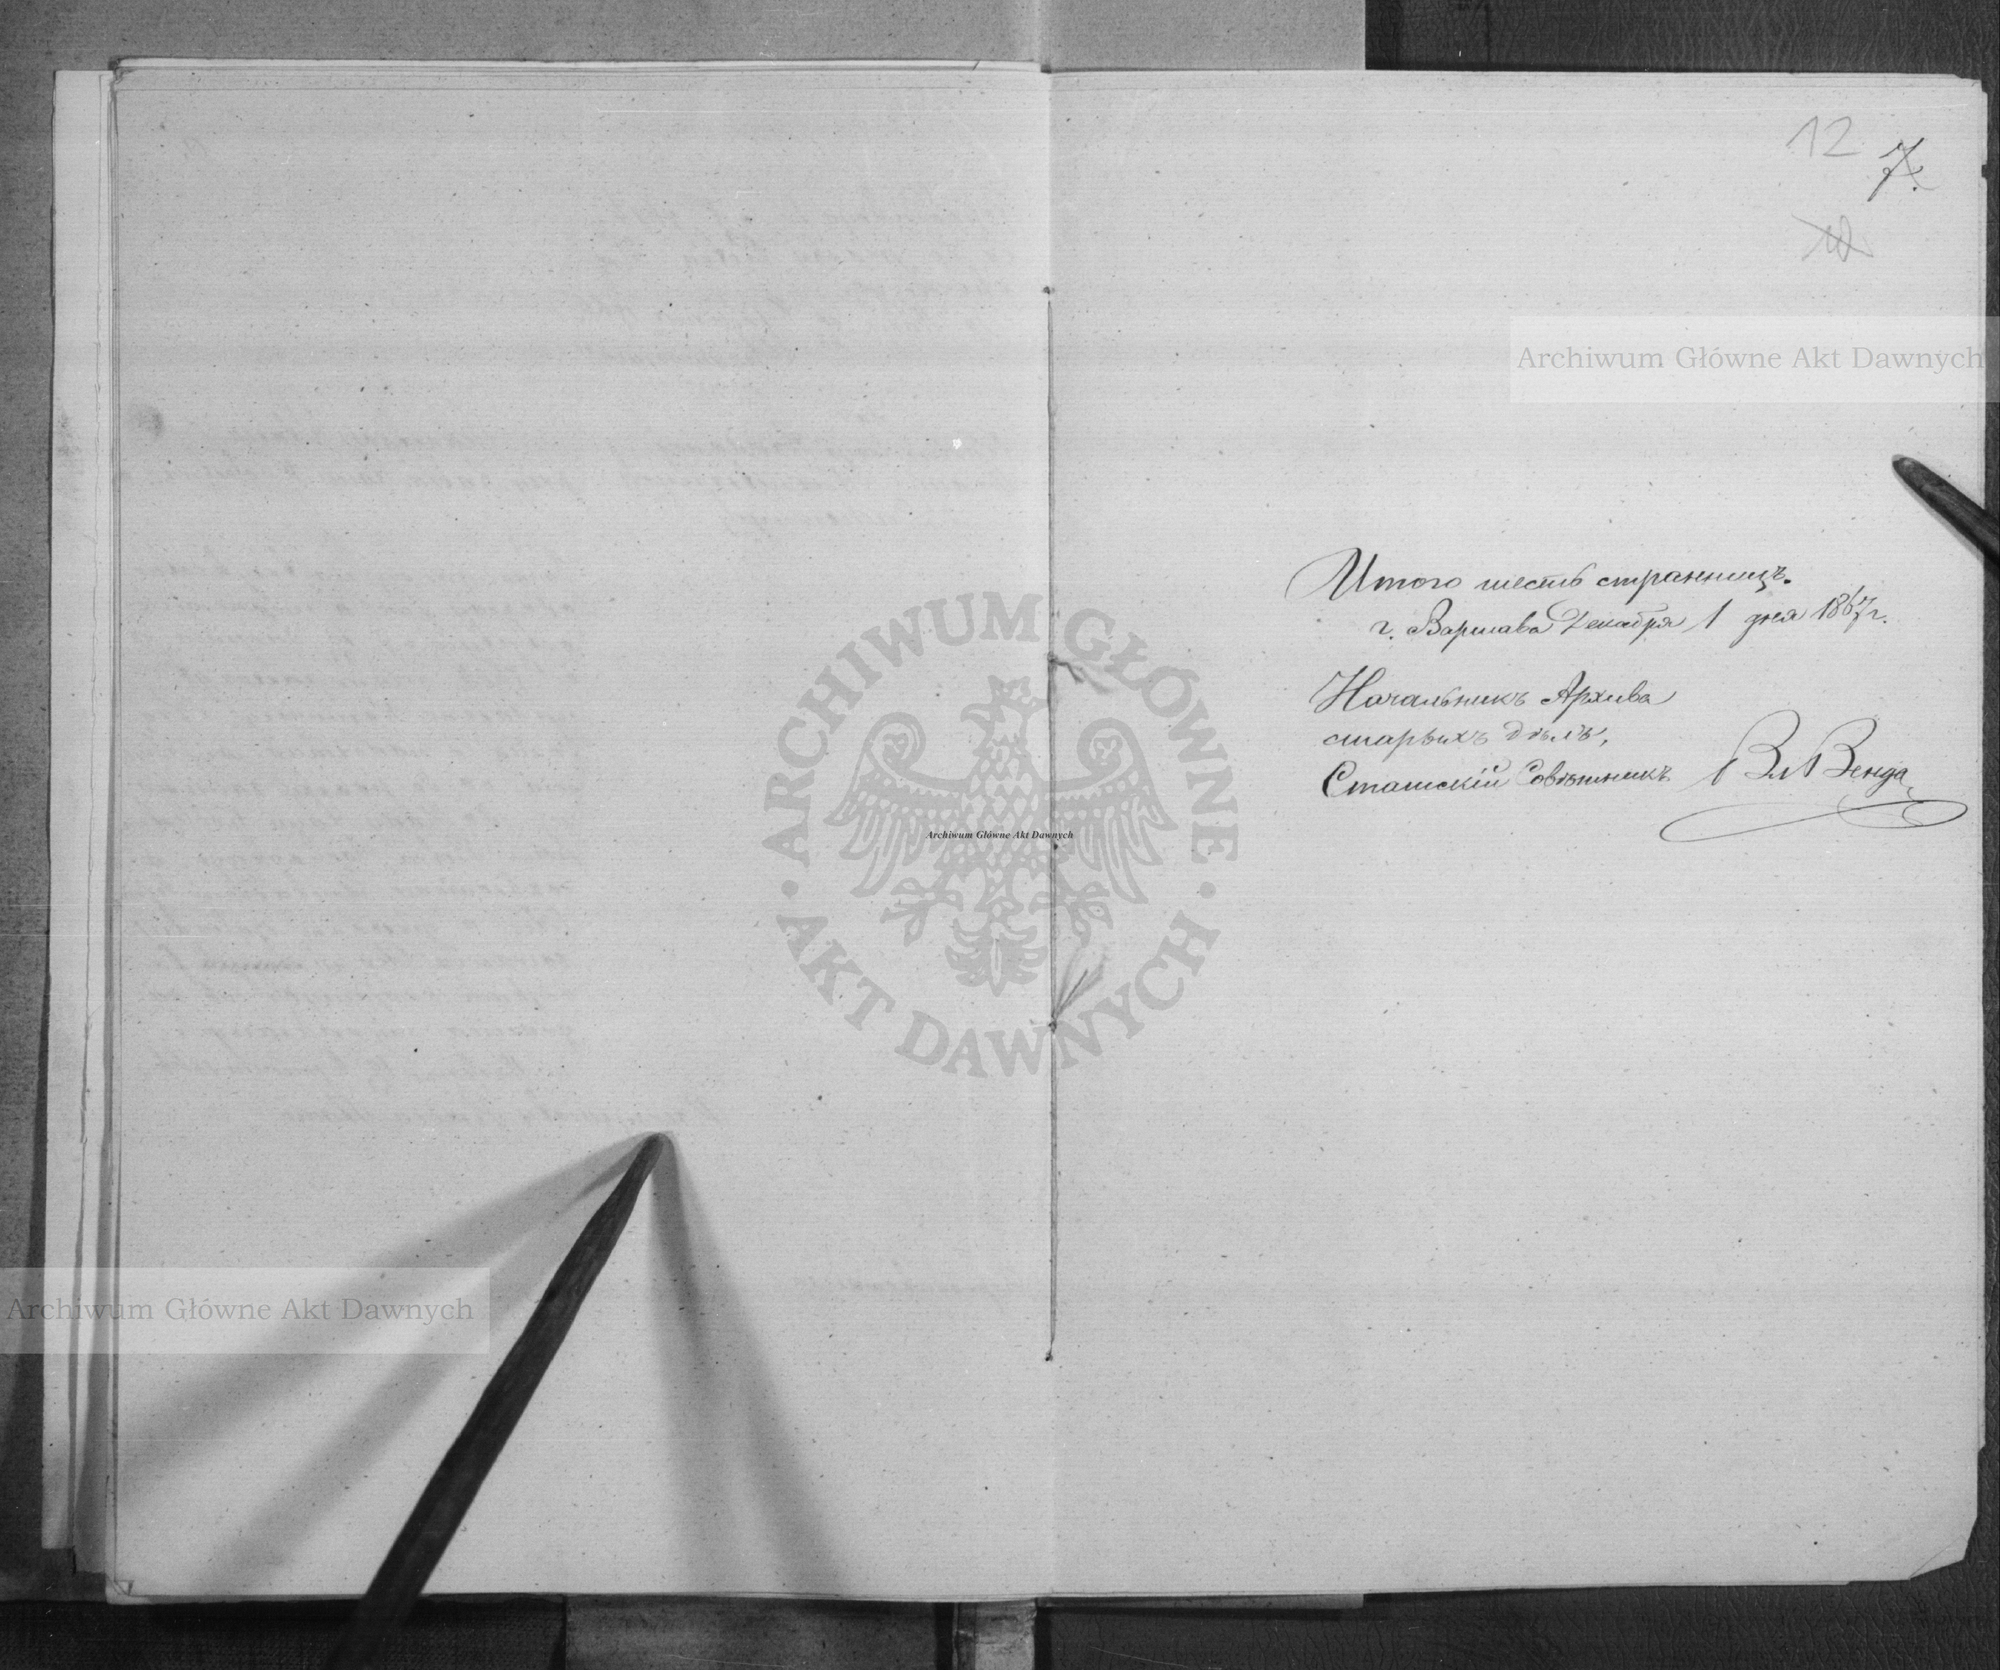 12
7.
Archiwum Główne Akt Dawnych
Итого шесть странницъ.
г. Варшава Декабря 1 дня 1867 г.
Начальникъ Архива
старыхъ дѣлъ,
Статскій Совѣтникъ Вл Венда
ARCHIWUM GŁÓWNE
· AKT DAWNYCH ·
Archiwum Główne Akt Dawnych
Archiwum Główne Akt Dawnych